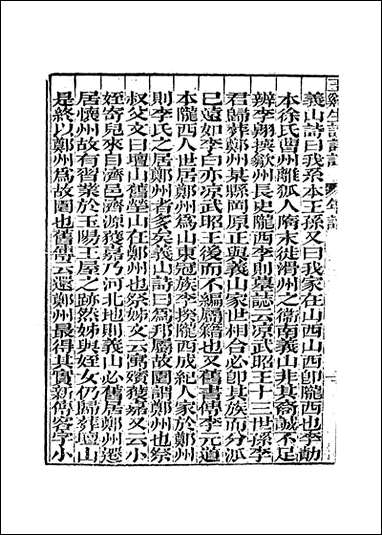 玉谿生詩詳註 年譜
義山詩曰我系本王孫又曰我家在山西山西卽隴西也李勣
本徐氏曹州離狐人隋末徙滑州之衞南義山非其裔誠不足
辨李翺撰歙州長史隴西李則墓誌云涼武昭王十三世孫李
君歸葬鄭州某縣岡原正與義山家世相合必卽其族而分派
已遠如李白亦涼武昭王後而不編屬籍也又舊書傳李元道
本隴西人世居鄭州爲山東冠族李揆隴西成紀人家於鄭州
則李氏之居鄭州者多矣義山詩曰爲邦屬故園謂鄭州也祭
叔父文曰壇山舊塋山在鄭州也祭姊文云寓殯獲嘉又云小
姪寄兒來自濟邑濟源獲嘉乃河北地則義山必舊居鄭州遷
居懷州故有習業於玉陽王屋之跡然姊與姪女仍歸葬壇山
是終以鄭州爲故園也舊傳云還鄭州最得其實新傳客字小